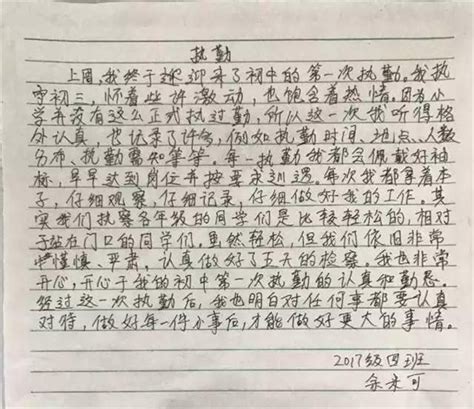 执勤
上周,我终于迎来了初中的第一次执勤。我执
守初三,怀着些许激动,也饱含着热情。因为小
学并没有这么正式执过勤,所以这一次我听得格
外认真,也记录了许多,例如执勤时间、地点、人数
分布、执勤需知等等。每一执勤我都会佩戴好袖
标,早早达到岗位并按要求巡逻。每次我都拿着本
子,仔细观察,仔细记录,仔细做好我的工作。其
实我们执察各年级的同学们是比较轻松的,相对
于站在门口的同学们。虽然轻松,但我们依旧非常
谨慎、严肃,认真做好了五天的检察。我也非常
开心,开心于我的初中第一次执勤的认真和勤恳。
经过这一次执勤后,我也明白对任何事都要认真
对待,做好每一件小事后,才能做好更大的事情。
2017级四班
余 可